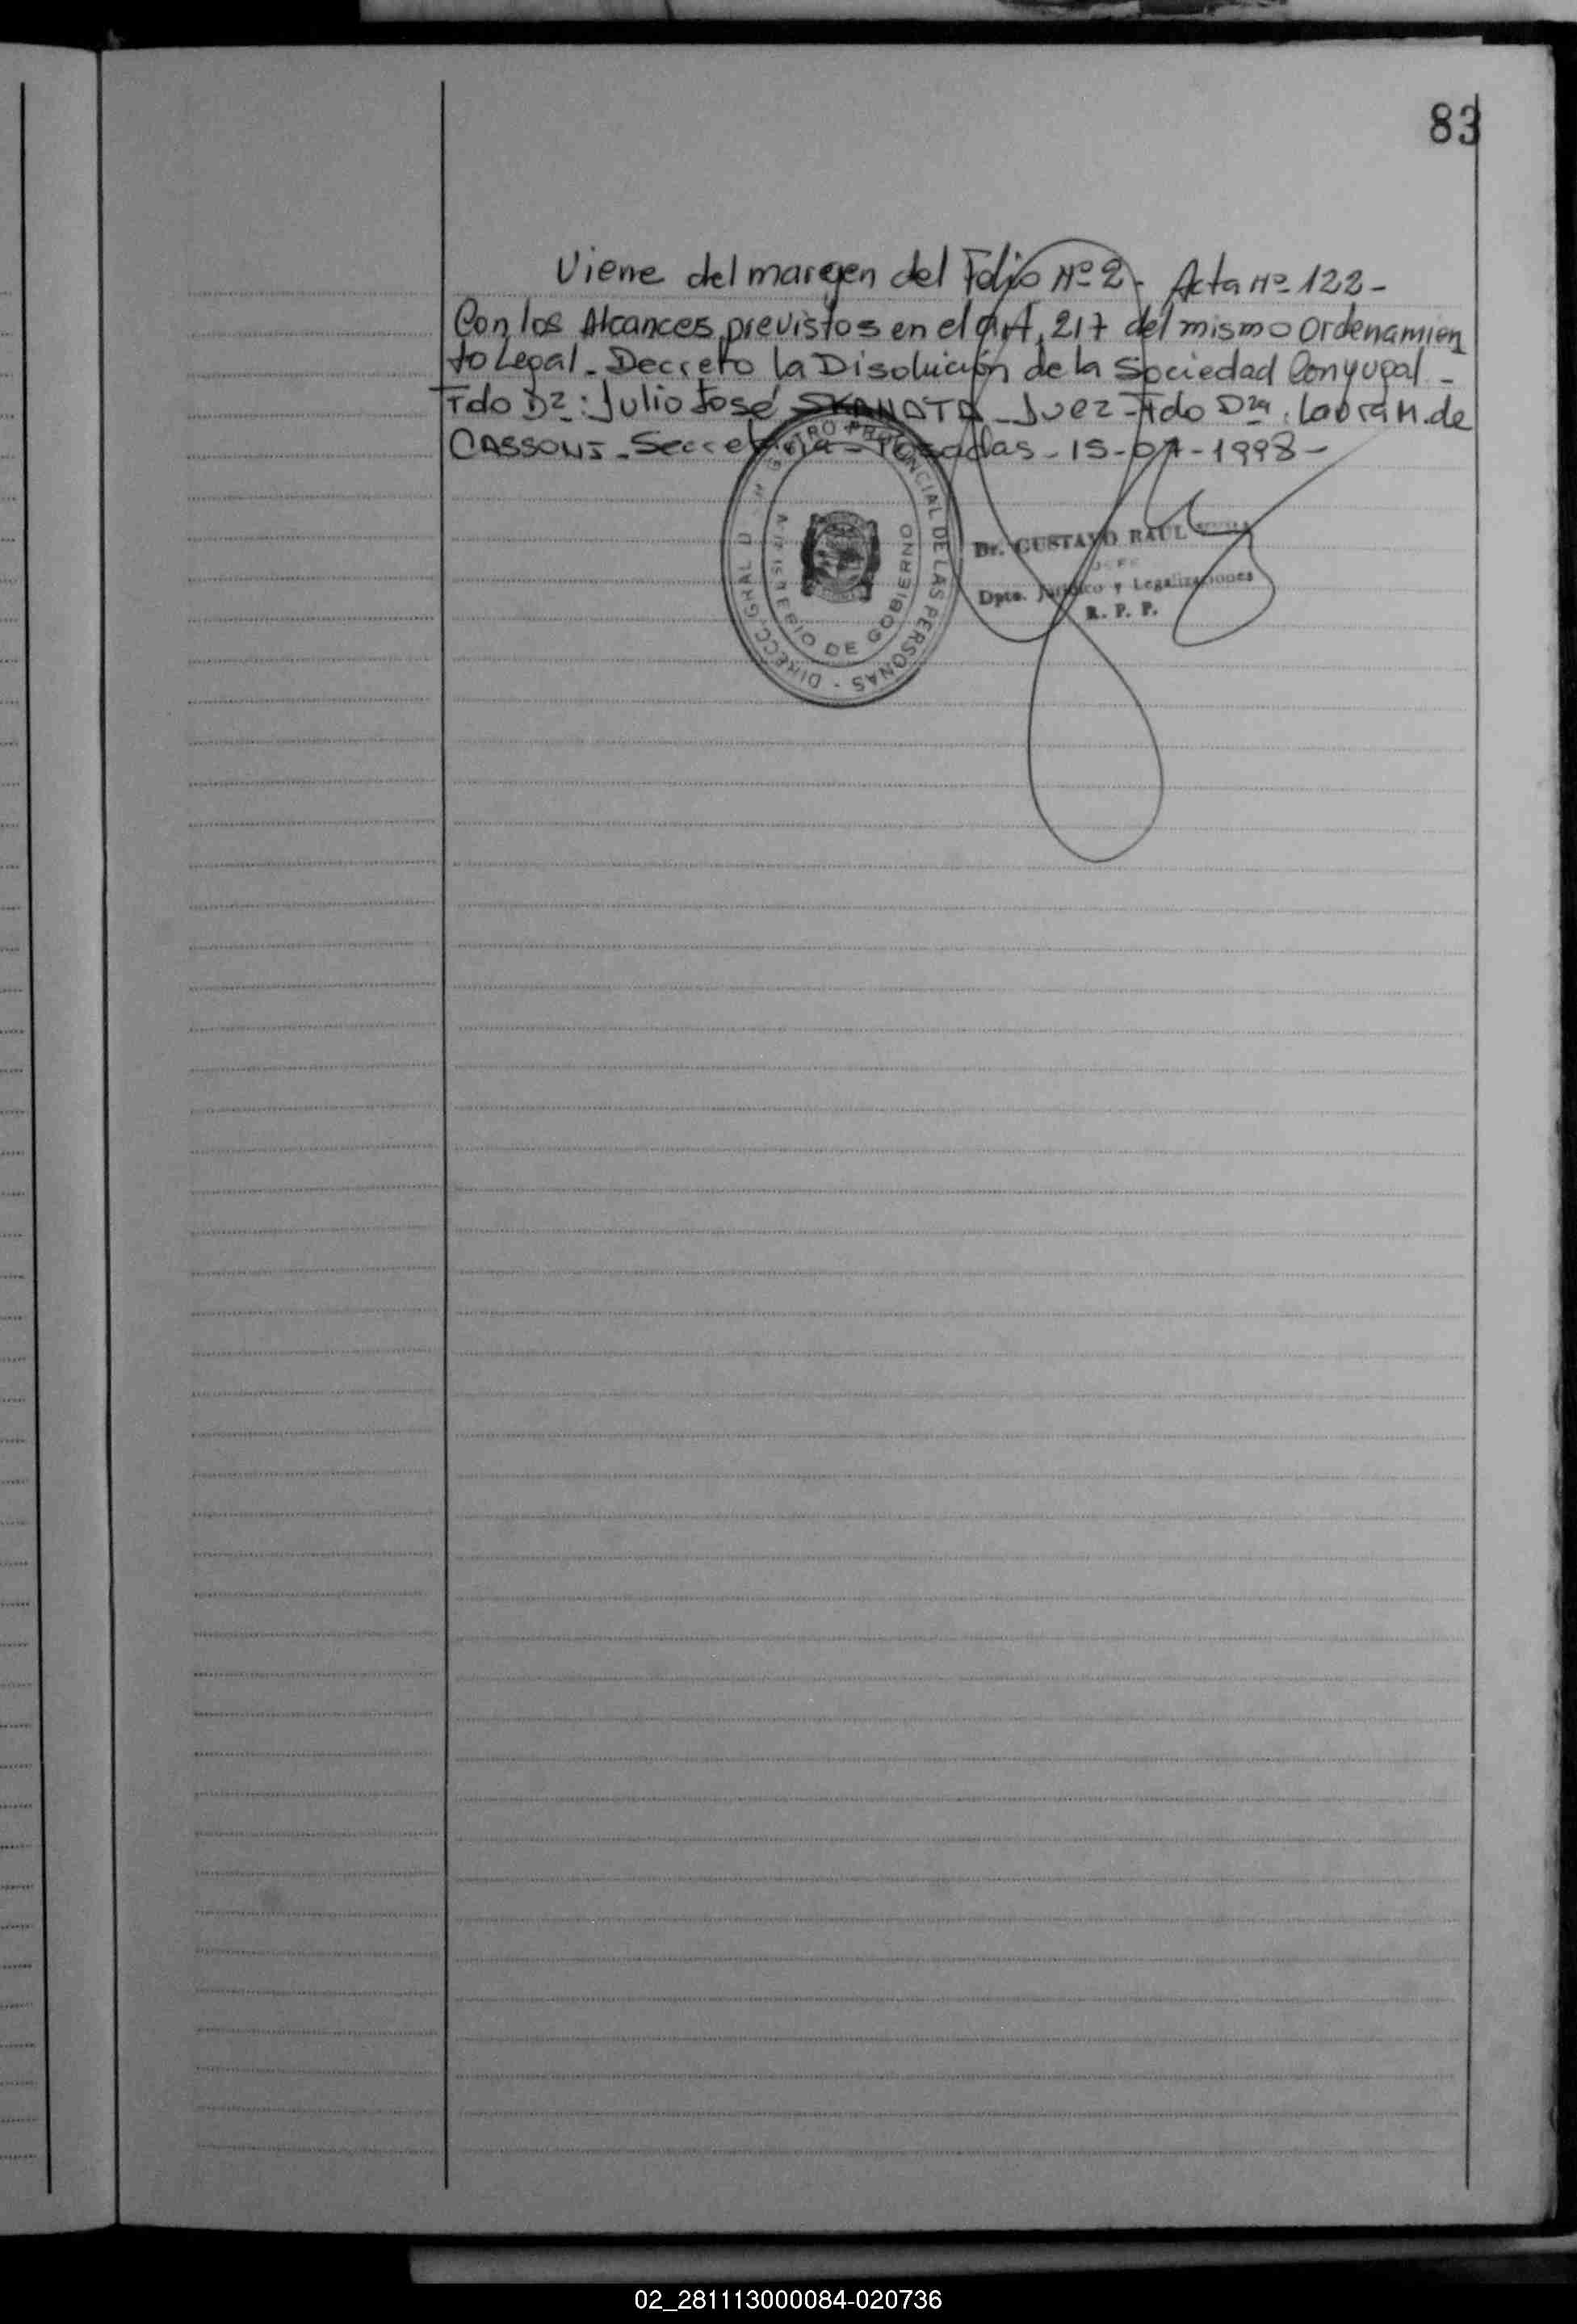 83
Viene del margen del Folio Nº 2 - Acta Nº 122 -
Con los Alcances previstos en el art, 217 del mismo Ordenamien
to Legal - Decreto la Disolución de la Sociedad Conyugal -
Fdo Dr: Julio José - Juez - Fdo Dra. Laura M. de
CASSONI - Secretaria - Posadas - 15-07-1998 -
PROVINCIAL DE LAS PERSONAS - DIRECC. GRAL
DE GOBIERNO
Dr. GUSTAVO RAUL
JEFE
Dpto. Jurídico y Legalizaciones
R. P. P.
02_281113000084-020736